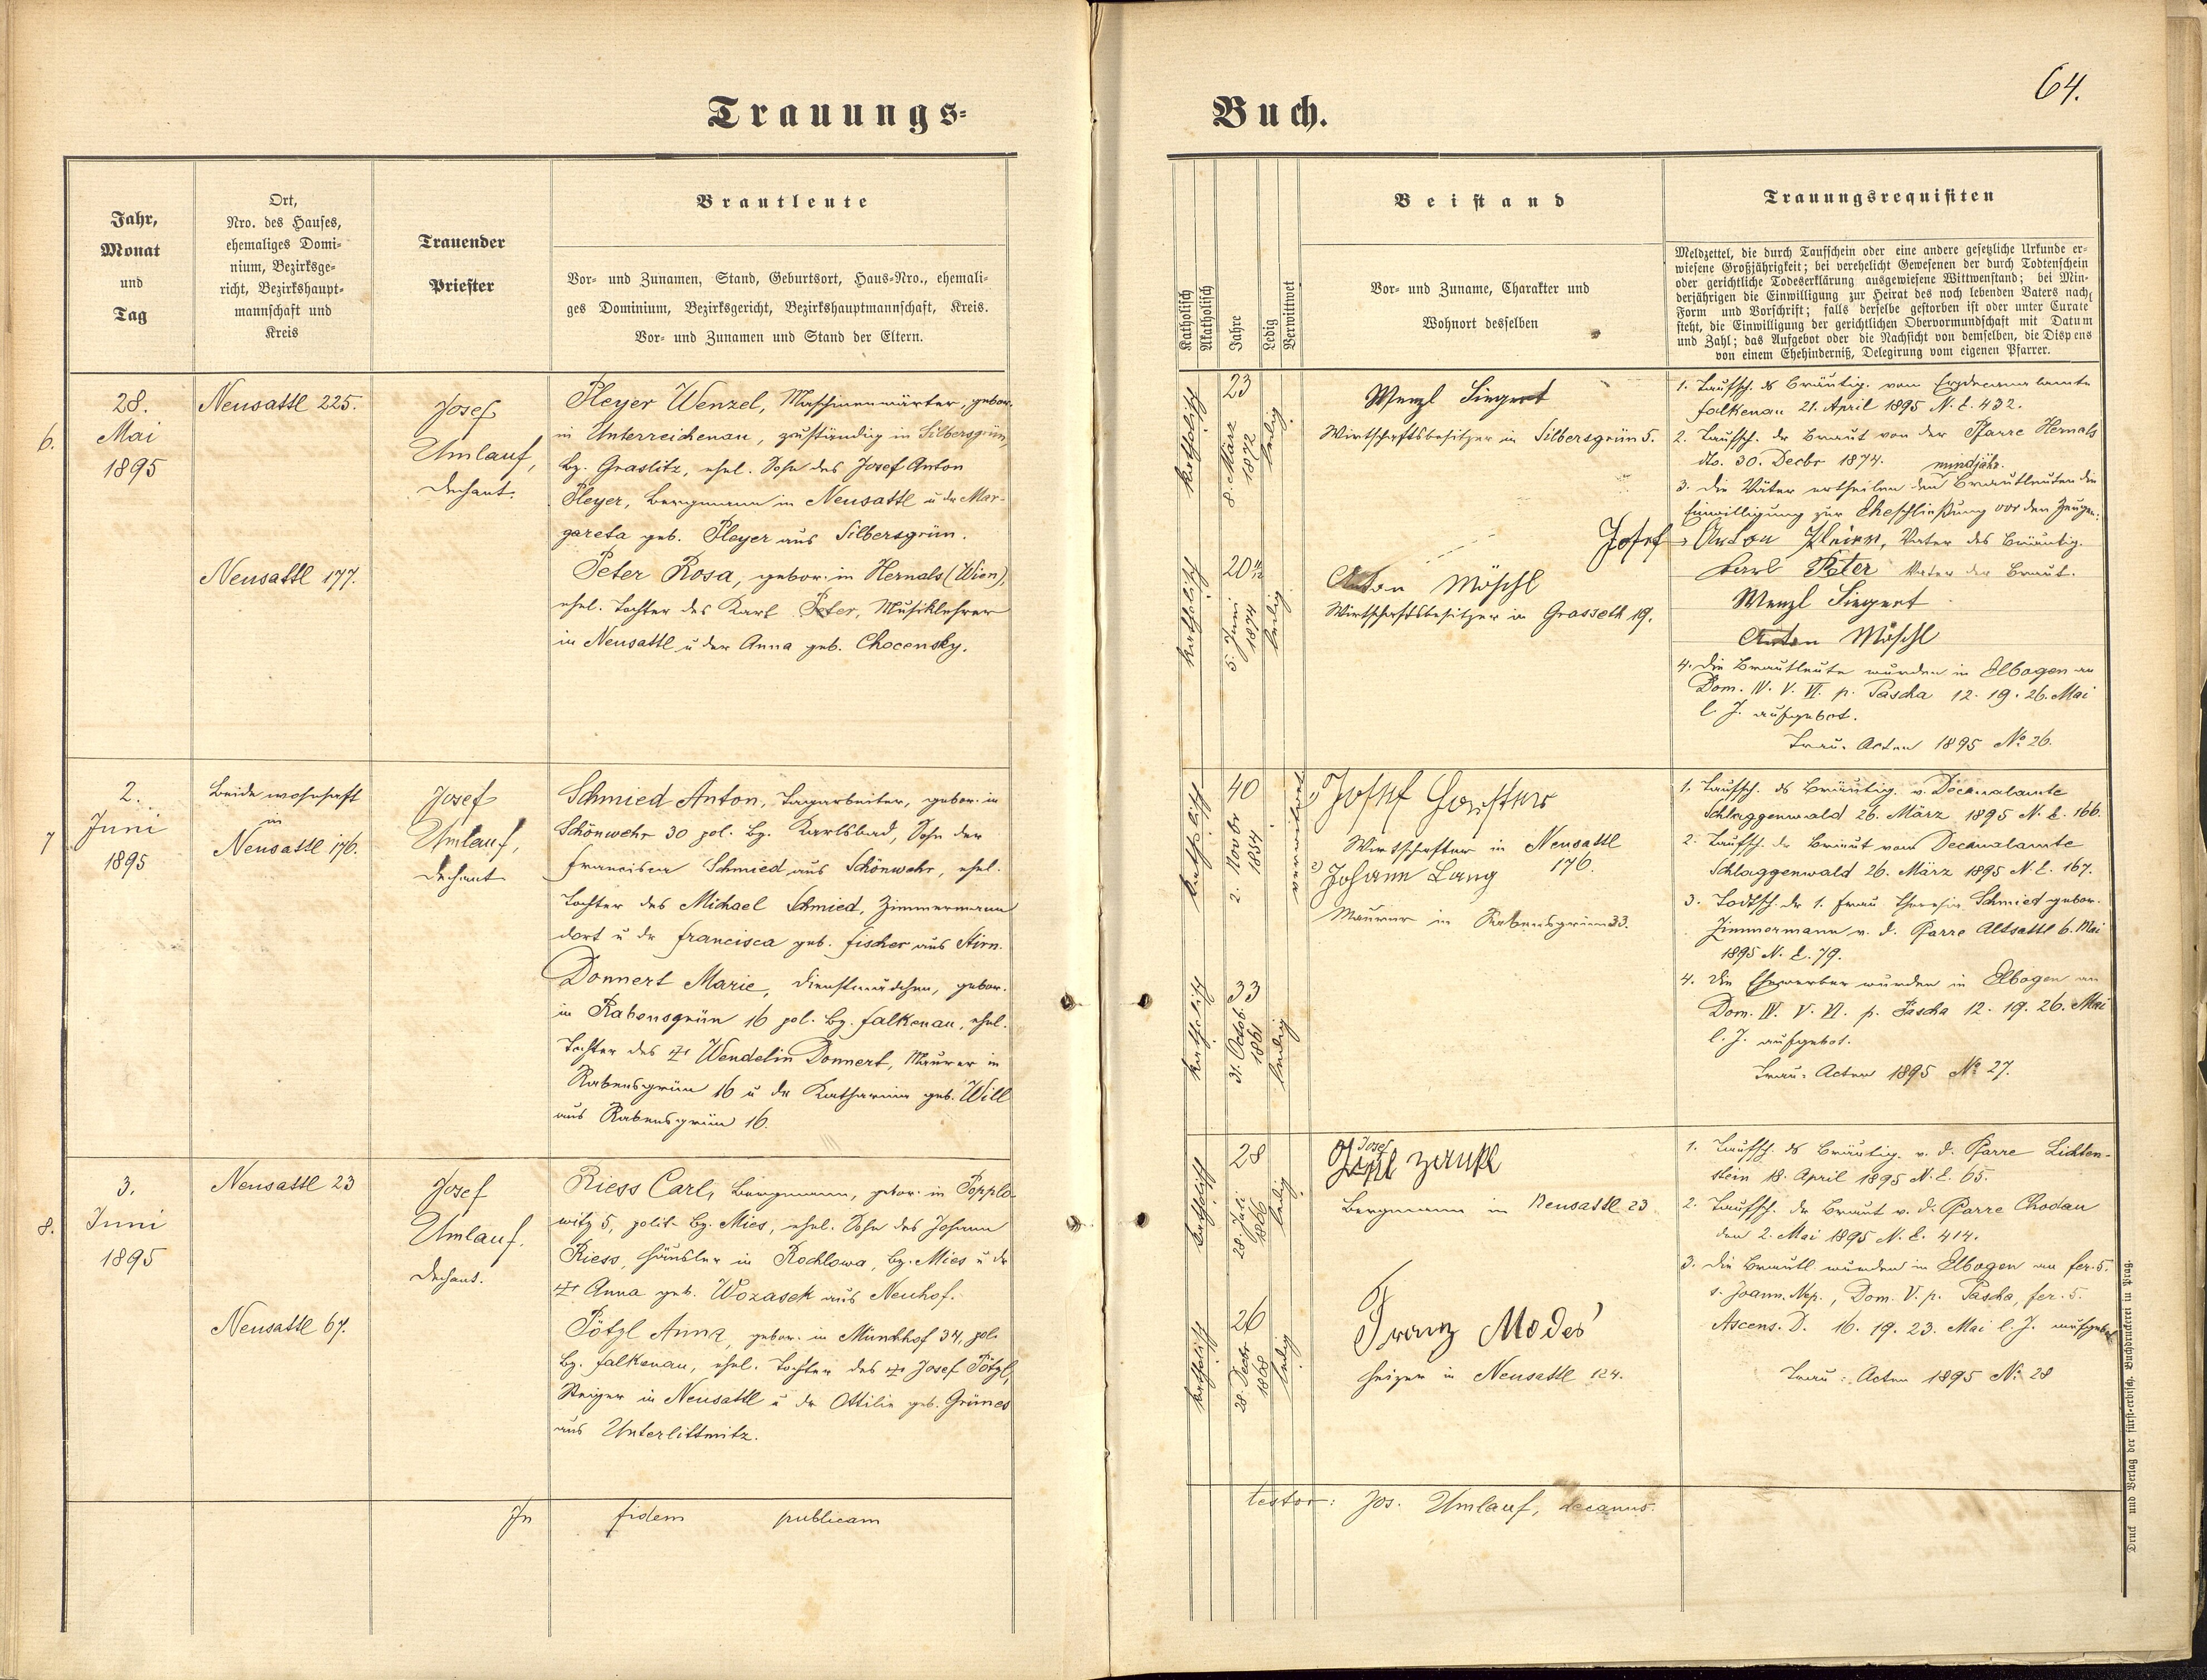 64.
Trauungs-
Buch.
Jahr,
Monat
und
Tag
Ort,
Nro. des Hauses,
ehemaliges Domi-
nium, Bezirksge-
richt, Bezirkshaupt-
mannschaft und
Kreis
Trauender
Priester
Brautleute
Vor- und Zunamen, Stand, Geburtsort, Haus-Nro., ehemali-
ges Dominium, Bezirksgericht, Bezirkshauptmannschaft, Kreis.
Vor- und Zunamen und Stand der Eltern.
Katholisch
Akatholisch
Jahre
Ledig
Verwittwet
Beistand
Vor- und Zuname, Charakter und
Wohnort desselben
Trauungsrequisiten
Meldzettel, die durch Taufschein oder eine andere gesetzliche Urkunde er-
wiesene Großjährigkeit; bei verehelicht Gewesenen der durch Todtenschein
oder gerichtliche Todeserklärung ausgewiesene Wittwenstand; bei Min-
derjährigen die Einwilligung zur Heirat des noch lebenden Vaters nach
Form und Vorschrift; falls derselbe gestorben ist oder unter Curate
steht, die Einwilligung der gerichtlichen Obervormundschaft mit Datum
und Zahl; das Aufgebot oder die Nachsicht von demselben, die Dispens
von einem Ehehinderniß, Delegirung vom eigenen Pfarrer.
6.
28.
Mai
1895
Neusattl 225.
Neusattl 177.
Josef
Umlauf,
Dechant.
Pleyer Wenzel, Maschinenwärter, gebor.
in Unterreichenau, zuständig in Silbersgrün,
Bz. Graslitz, ehel. Sohn des Josef Anton
Pleyer, Bergmann in Neusattl u. der Mar-
gareta geb. Pleyer aus Silbersgrün.
Peter Rosa, gebor. in Hernals (Wien),
ehel. Tochter des Karl Peter, Musiklehrer
in Neusattl u. der Anna geb. Chocensky.
katholisch
23
8. März
1872
ledig
katholisch
20 11/12
5. Juni
1874
ledig
Wenzl Siegert
Wirtschaftsbesitzer in Silbersgrün 5.
Anton Möschl
Wirtschaftsbesitzer in Grasseth 19.
1. Taufsch. des Bräutig. vom Erzdecanalamte
Falkenau 21. April 1895 N. E. 432.
2. Taufsch. der Braut von der Pfarre Hernals
dto. 30. Decbr 1874.
3. Die Väter ertheilen den mindjähr. Brautleuten die
Einwilligung zur Eheschließung vor den Zeugen:
Josef Anton Pleier, Vater des Bräutig.
Karl Peter Vater der Braut.
Wenzl Siegert
Anton Möschl
4. Die Brautleute wurden in Elbogen an
Dom. IV. V. VI. p. Pascha 12. 19. 26. Mai
l. J. aufgebot.
Trau. Acten 1895 No 26.
7
2.
Juni
1895
Beide wohnhaft
in
Neusattl 176.
Josef
Umlauf,
Dechant
Schmied Anton, Tagarbeiter, gebor. in
Schönwehr 30 pol. Bz. Karlsbad, Sohn der
Francisca Schmied aus Schönwehr, ehel.
Tochter des Michael Schmied, Zimmermann
dort u. der Francisca geb. Fischer aus Stirn.
Donnert Marie, Dienstmädchen, gebor.
in Rabensgrün 16 pol. Bz. Falkenau, ehel.
Tochter des Wendelin Donnert, Maurer in
Rabensgrün 16 u. der Katharina geb. Will
aus Rabensgrün 16.
katholisch
40
2. Novbr
1854
verwitwet
katholisch
33
31. Octob.
1861
ledig
1) Josef
Wirtschafter in Neusattl
176.
2) Johann Lang
Maurer in Rabensgrün 33.
1. Taufsch. des Bräutig. v. Decanalamte
Schlaggenwald 26. März 1895 N. E. 166.
2. Taufsch. der Braut vom Decanalamte
Schlaggenwald 26. März 1895 N. E. 167.
3. Todtsch. der 1. Frau Theresia Schmied gebor.
Zimmermann v. d. Pfarre Altsattl 6. Mai
1895 N. E. 79.
4. Die Ehewerber wurden in Elbogen an
Dom. IV. V. VI. p. Pascha 12. 19. 26. Mai
l. J. aufgebot.
Trau: Acten 1895 No 27.
8.
3.
Juni
1895
Neusattl 23
Neusattl 67.
Josef
Umlauf.
Dechant.
Riess Carl, Bergmann, gebor. in Popplo-
witz 5, polit. Bz. Mies, ehel. Sohn des Johann
Riess, Häusler in Rochlowa, Bz. Mies u. der
Anna geb. Wozasek aus Neuhof.
Pötzl Anna, gebor. in Münchhof 34, pol.
Bz. Falkenau, ehel. Tochter des Josef Pötzl,
Steiger in Neusattl u. der Ottilia geb. Grünes
aus Unterlittmitz.
katholisch
28
28. Juli
1866
ledig
katholisch
26
28. Decbr
1868
ledig
Josef
Bergmann in Neusattl 23.
Franz Modes
Heizer in Neusattl 124.
1. Taufsch. des Bräutig. v. d. Pfarre Lichten-
stein 18. April 1895 N. E. 65.
2. Taufsch. der Braut v. d. Pfarre Chodau
den 2. Mai 1895 N. E. 414.
3. Die Brautl. wurden in Elbogen an fer. 5.
s. Joann. Nep., Dom. V. p. Pascha, fer. 5.
Ascens. D. 16. 19. 23. Mai l. J. aufgebot
Trau: Acten 1895 No 28
In fidem publicam
testor: Jos. Umlauf, decanus.
Druck und Verlag der fürst-erzbisch. Buchdruckerei in Prag.